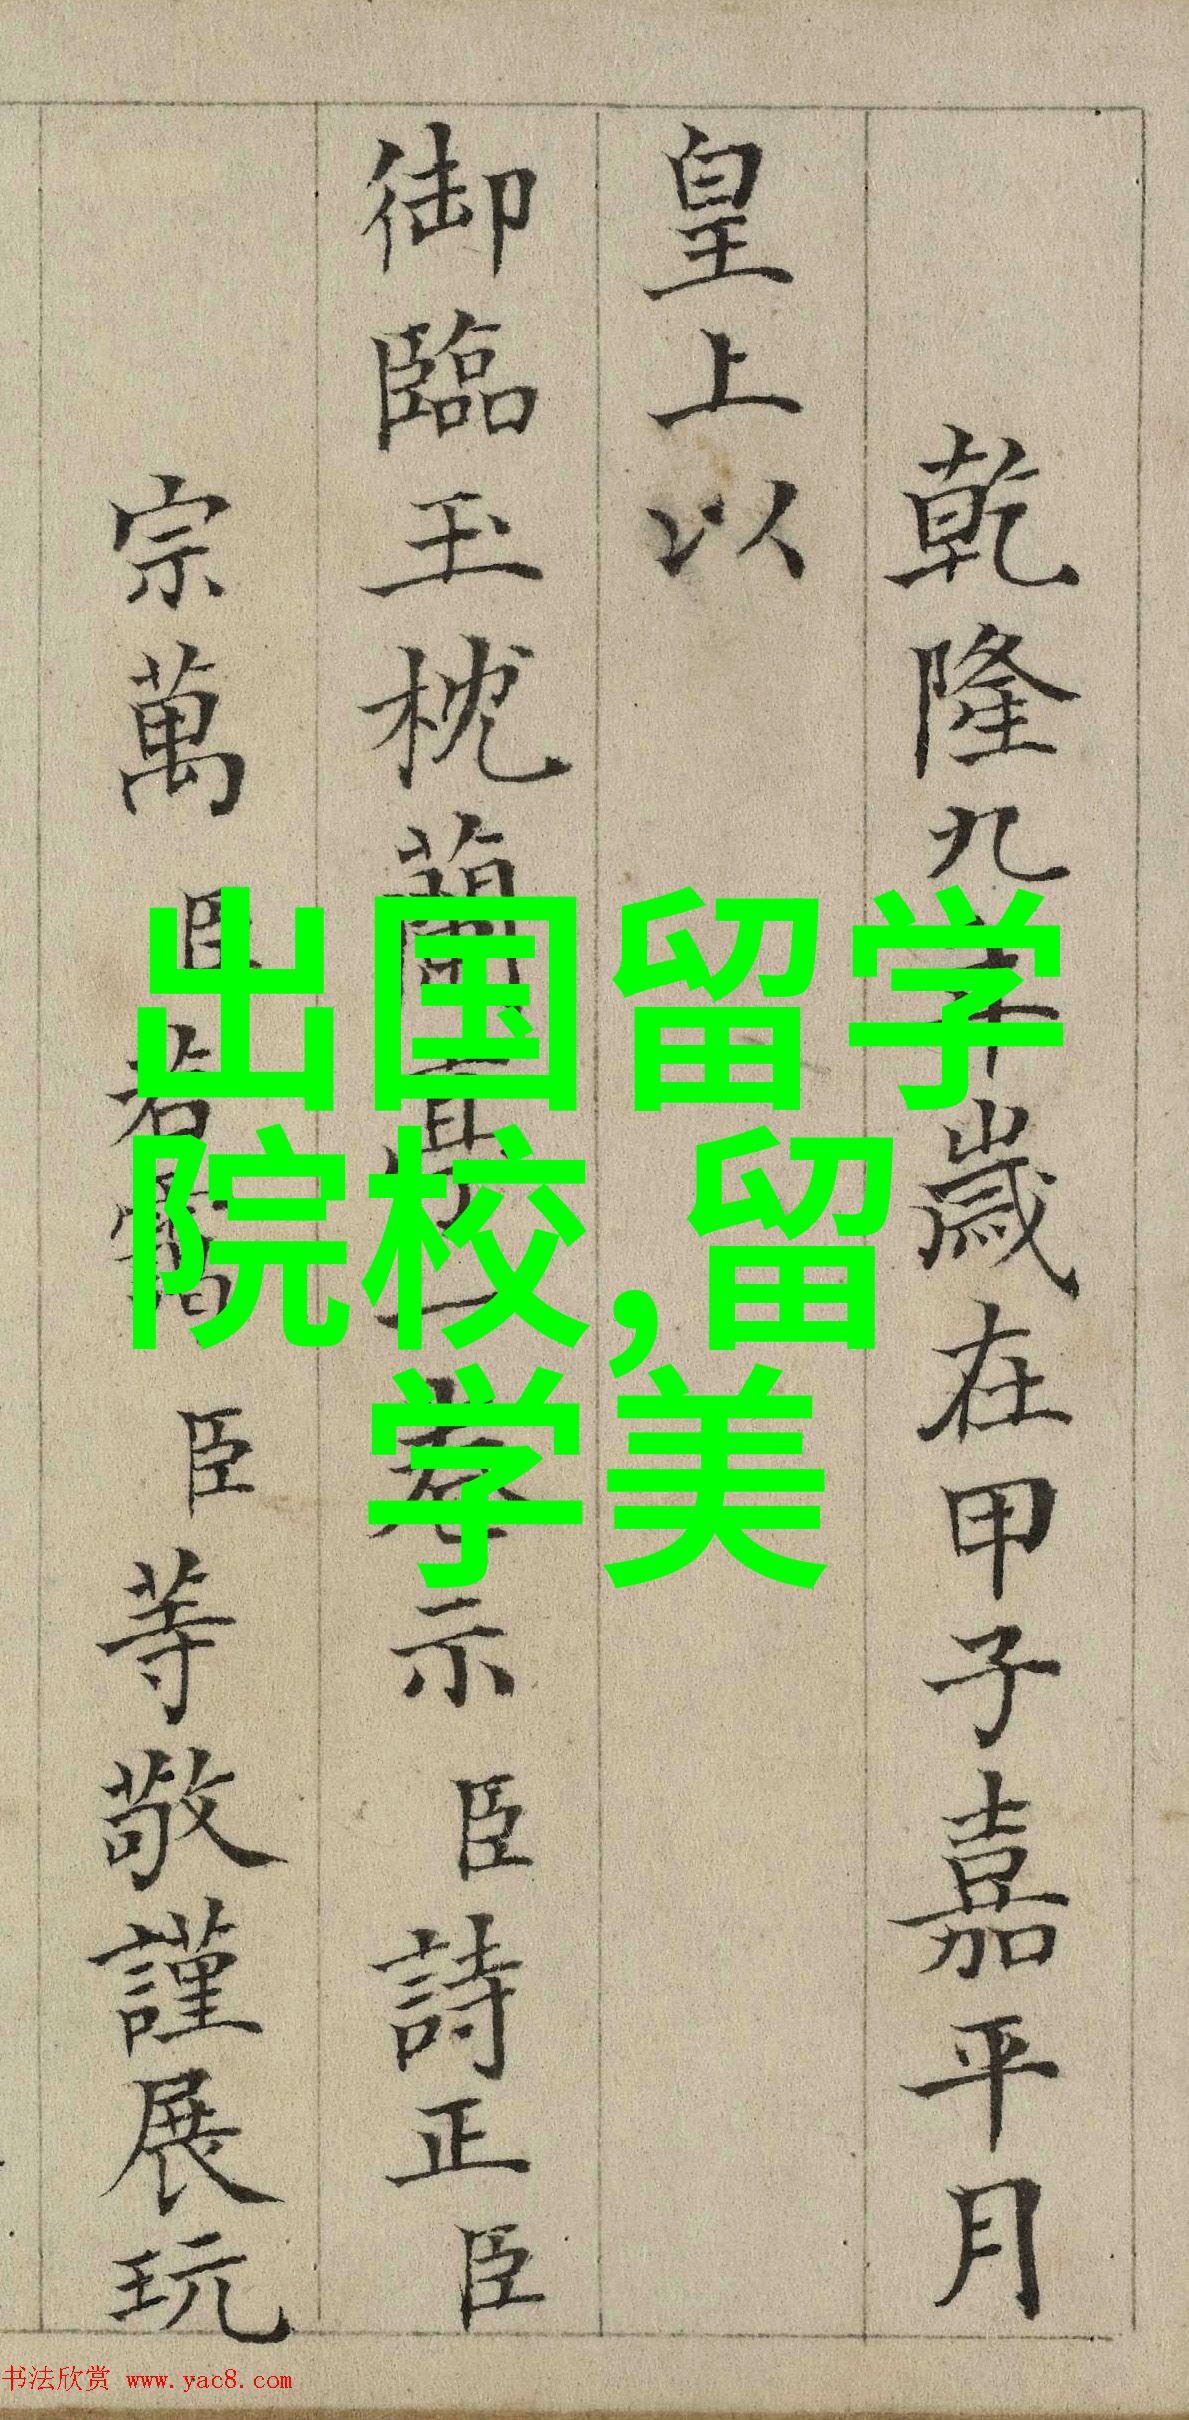 乾隆九年歲在甲子嘉平月
皇上以
御臨玉枕蘭亭一卷示臣詩正臣
宗萬臣若靄臣等敬謹展玩
出国留学
院校,留
学美
书法欣赏 www.yac8.com